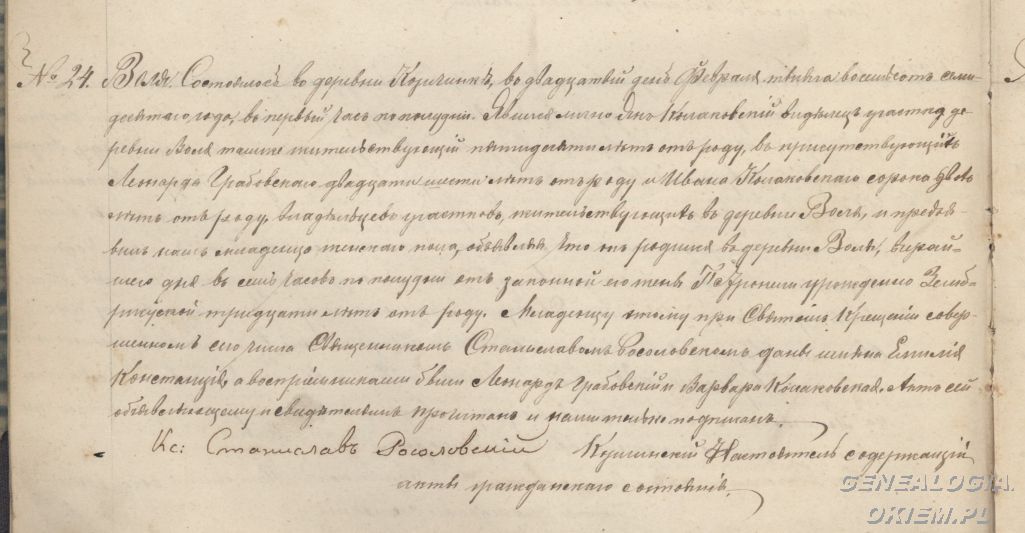 № 24. Воля. Состоялось во деревни Кучинкѣ, во двадцатый день Февраля тысяча восемьсот семи-
десятаго года, въ первый часъ пополудни. Явился лично Янъ Колаковскій владѣлецъ участка де-
ревни Воля также жительствующій пятидесяти лѣтъ отъ роду, въ присутствующихъ
Леонарда Грабовскаго двадцати шести лѣтъ отъ роду и Ивана Колаковскаго сорока
лѣтъ отъ роду, владѣльцевъ участковъ, жительствующихъ въ деревни Воля, и предъя-
вилъ намъ младенца женскаго пола, объявляя, что онъ родился въ деревни Воли,
дня въ семь часовъ по полудни отъ законной его жены Петронели урожденой
тридцати лѣтъ отъ роду. Младенцу этому при Святомъ Крещеніи совер-
шенномъ сего числа Священникомъ Станиславомъ Росоловскомъ даны имѣна Емилія
Констанція, а воспріемниками были Леонардъ Грабовскій и Варвара Колаковская. Актъ сей
объявляющему и свидѣтелямъ прочитанъ и нами только подписанъ.
Кс: Станиславъ Росоловскій Кучинскій Настоятель содержащій
акты гражданскаго состоянія.
GENEALOGIA
OKIEM.PL